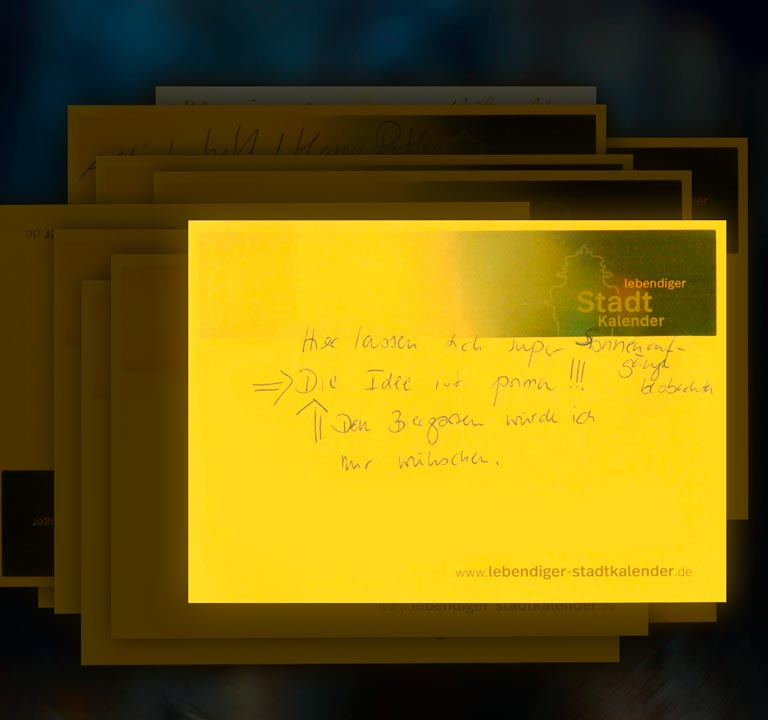 Harry Potter
lebendiger
Stadt
Kalender
Hier lassen sich super Sonnenauf-
gänge
beobachten
=> Die Idee ist prima !!!
Den Biergarten würde ich
mir wünschen.
www.lebendiger-stadtkalender.de
www.lebendiger-stadtkalender.de